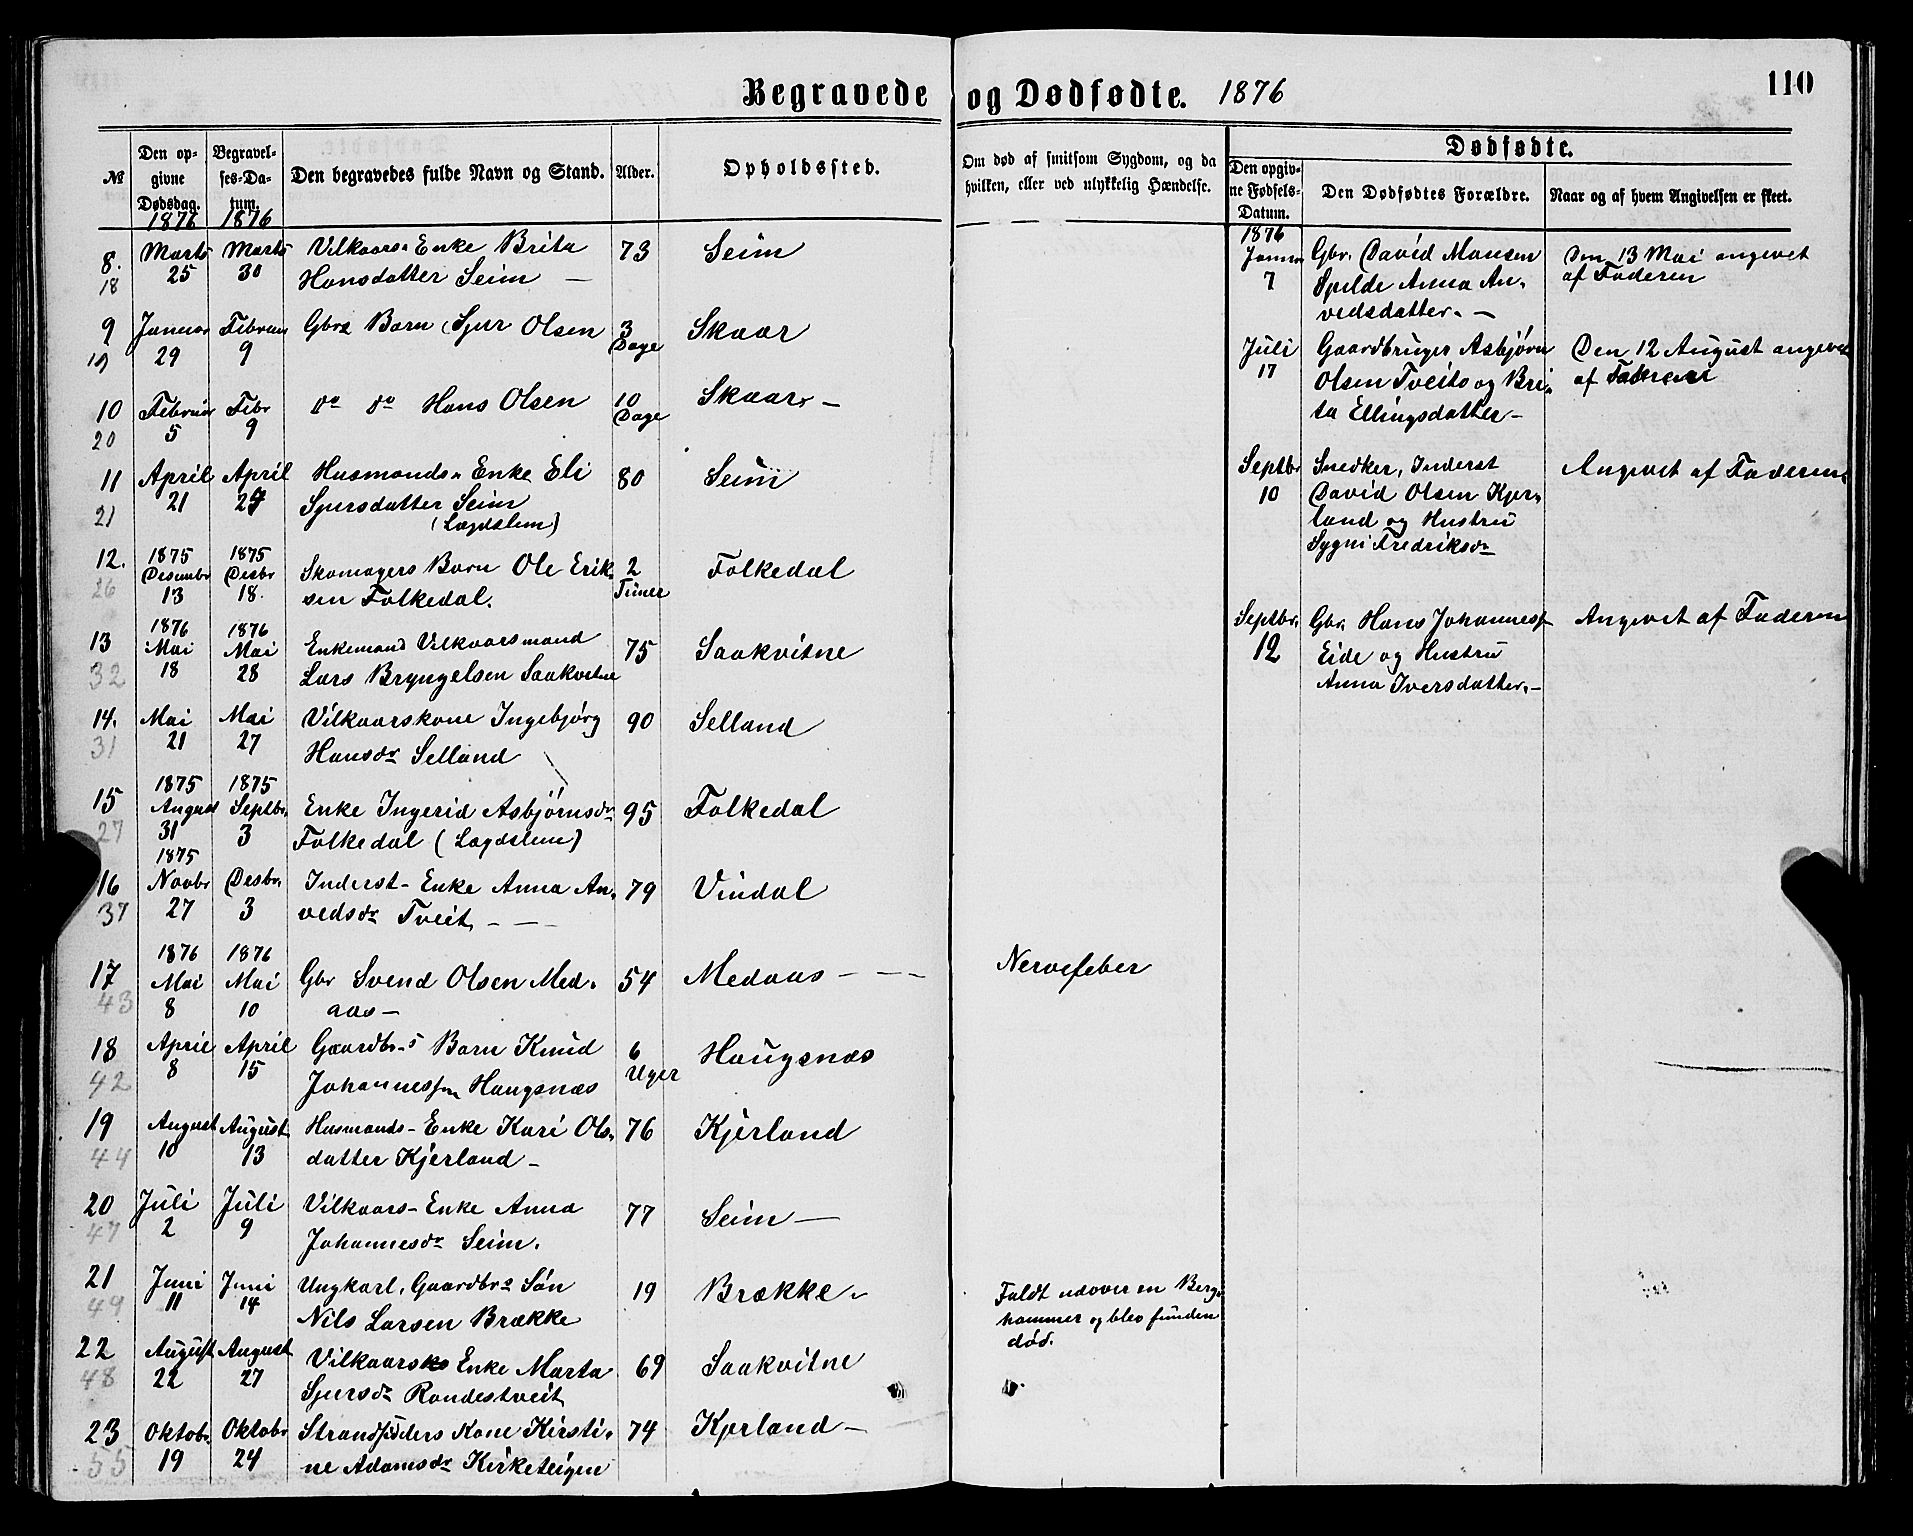 Begravede og Dødfødte. 1876
110
№
Den opgivne Dødsdag. 1876
Begravelses-Datum. 1876
Den begravedes fulde Navn og Stand.
Alder.
Opholdssted.
Om død af smitsom Sygdom, og da hvilken, eller ved ulykkelig Hændelse.
Dødfødte.
Den opgivne Fødsels-Datum.
Den Dødfødtes Forældre.
Naar og af hvem Angivelsen er skeet.
8. Marts Marts Vilkaars Enke Brita 73 Seim
18 25 30 Hansdatter Seim —
9 Januar Februar Gbrs Barn Sjur Olsen 3 Skaar
19 29 9 Dage
10 Februar Febr do do Hans Olsen 10 Skaar —
20 5 9 Dage
11 April April Husmands Enke Eli 80 Seim
21 21 29 Sjursdatter Seim
(Lægdslem)
12. 1875 1875
Desembr Desbr Skomagers Barn Ole Erik- 2 Folkedal
26 13 18. sen Folkedal. Timer
13 1876 1876
Mai Mai Enkemand Vilkaarsmand 75 Saakvitne
32 18 28 Lars Bryngelsen Saakvitne
14. Mai Mai Vilkaarskone Ingebjørg 90 Selland
31 21 27 Hansdr Selland
15 1875 1875
August Septbr. Enke Ingerid Asbjørnsdr 95 Folkedal
27 31 3 Folkedal (Lægdslem)
1875
16 Novbr Desbr. Inderst- Enke Anna An- 79 Vindal
37 27 3 vedsdr Tveit — —
1876 1876
17 Mai Mai Gbr Svend Olsen Med- 54 Medaas — — — Nervefeber
43 8 10 aas —
18 April April Gaardbr-s Barn Knud 6 Haugsnæs
42 8 15 Johannessn Haugsnæs Uger
19 August August Husmands- Enke Kari Ols- 76 Kjerland
44 10 13 datter Kjerland —
20 Juli Juli Vilkaars- Enke Anna 77 Seim —
47 2 9 Johannesdr Seim.
21 Juni Juni Ungkarl, Gaardbrs Søn 19 Brække Faldt udover en Berg-
49 11 14 Nils Larsen Brække hammer og blev funden
død.
22 August August Vilkaars Enke Marta 69 Saakvitne
48 22 27 Sjursdr Rondestveit
23 Oktobr. Oktobr Strandsidders Kone Kirsti- 74 Kjerland —
55 19 24 ne Adamsdr Kirketeigen
1876
Januar Gbr. David Monsen Den 13 Mai angivet
7 Spilde Anna An- af Faderen
vedsdatter. —
Juli Gaardbruger Asbjørn Den 12 August angivet
17 Olsen Tveito og Bri- af Faderen
ta Ellingsdatter —
Septbr Snedker, Inderst Angivet af Faderen
10 David Olsen Kjer-
land og Hustru
Sygni Fredriksdr
Septbr. Gbr. Hans Johanness Angivet af Faderen
12 Eide og Hustru
Anna Iversdatter. —